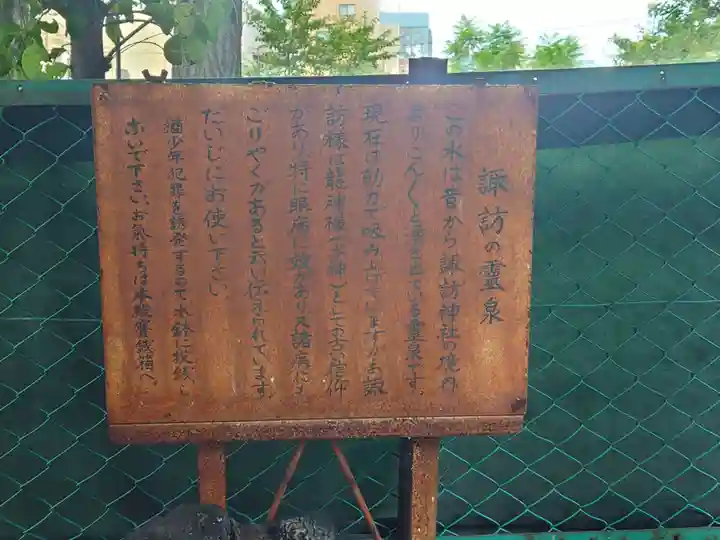 諏訪の靈泉
この水は昔から諏訪神社の境内
よりこん〱と湧き出ている霊泉です。
現在は動力で吸み上げていますがお諏
訪様は龍神様(水神)としての古い信仰
があり、特に眼病に効があり又諸病にも
ごりやくがあると云い伝えられています。
だいじにお使い下さい。
猶少年犯罪を誘発するので水鉢に投銭し
ないで下さい。お氣持ちは本殿賽銭箱へ。